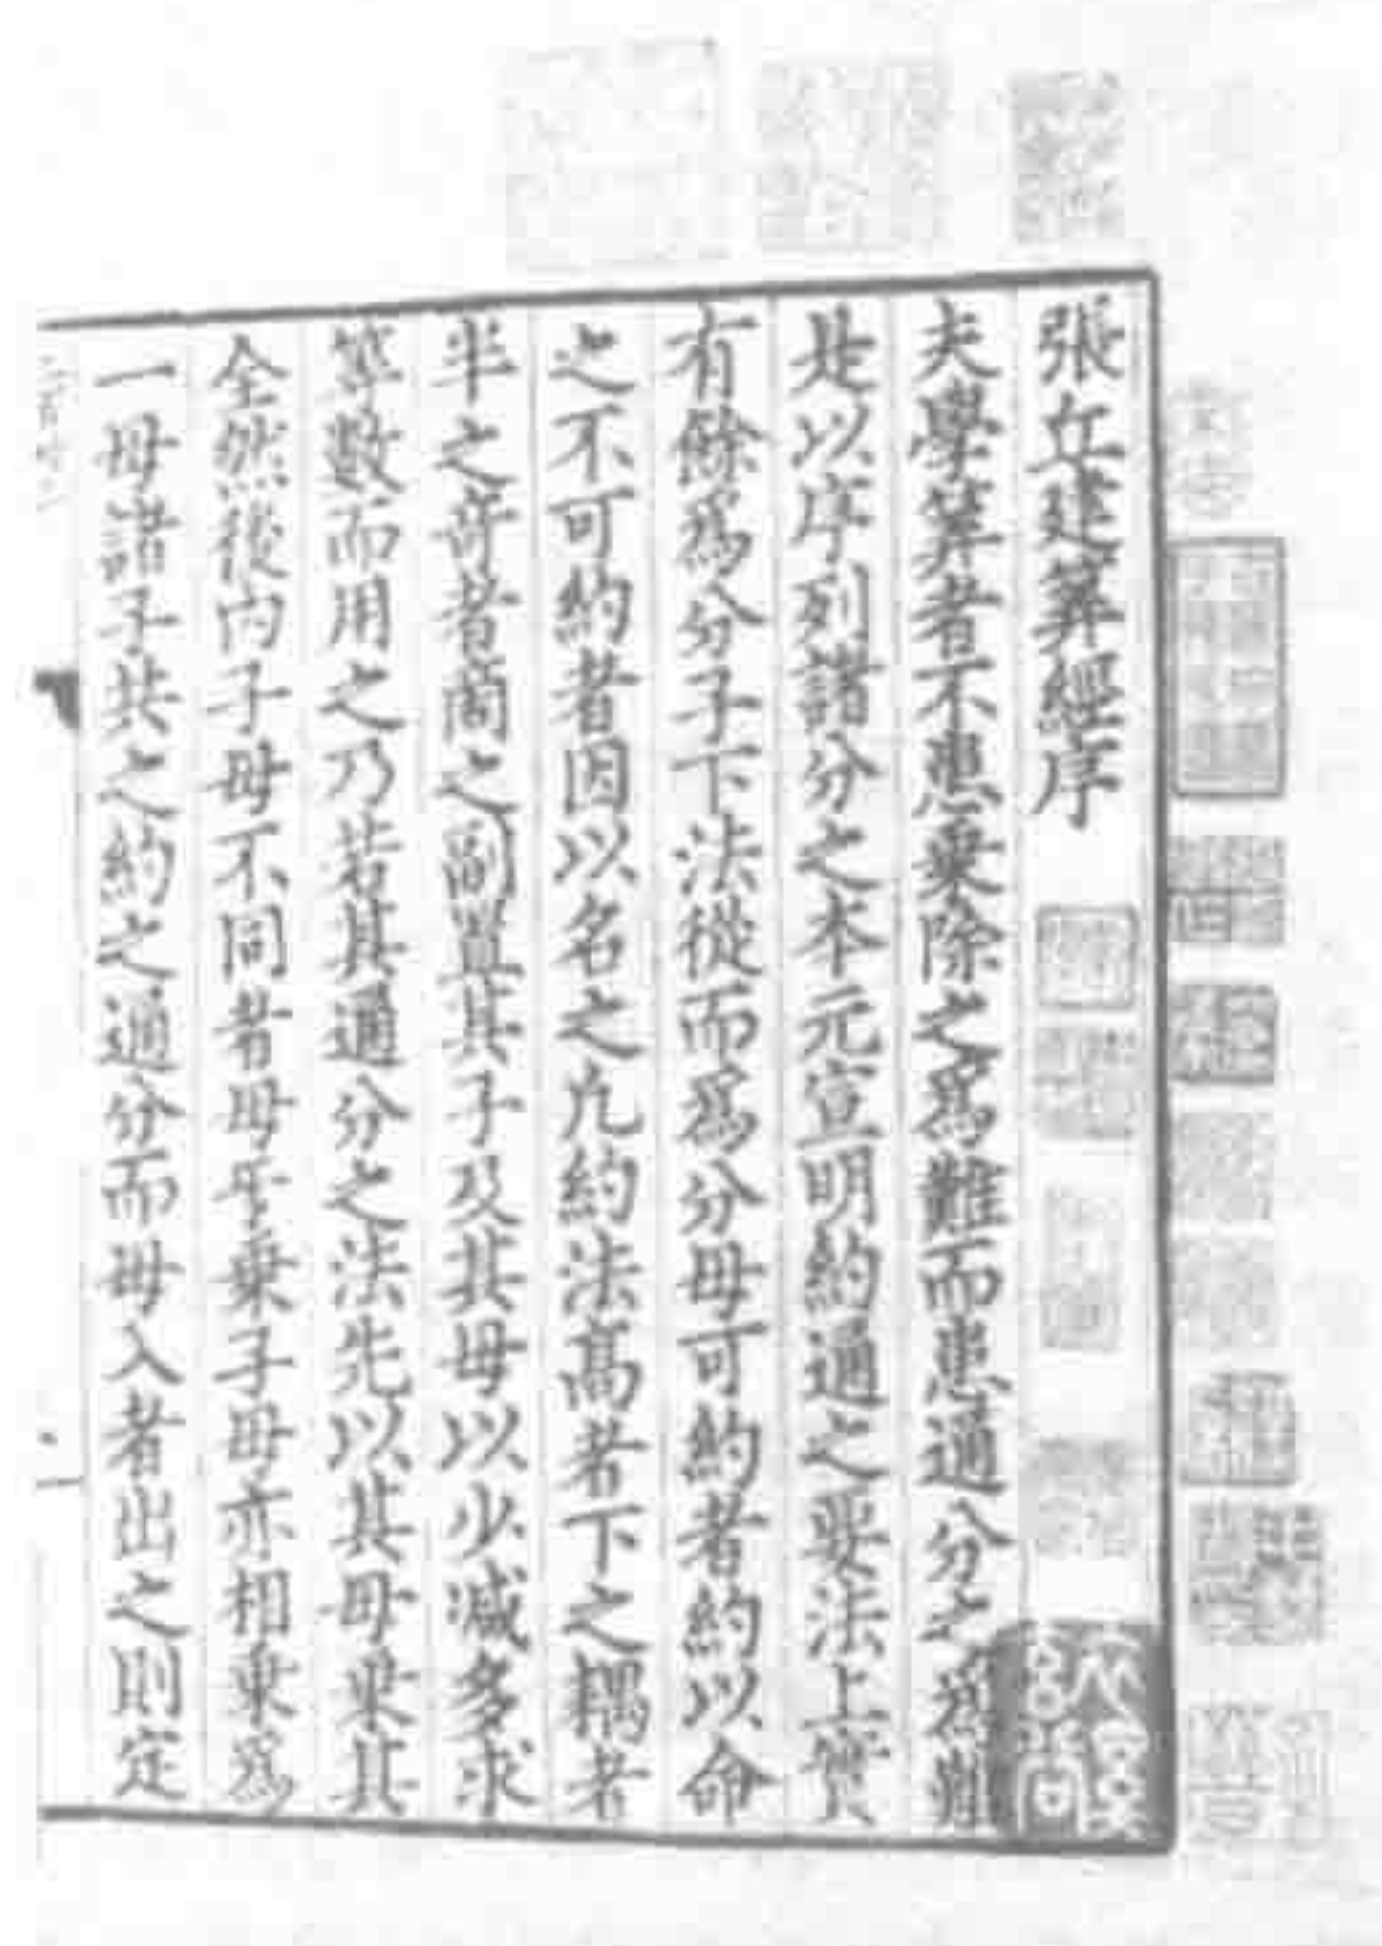 張丘建筭經序
夫學筭者不患乗除之爲難而患通分之爲難
是以序列諸分之本元宣明約通之要法上實
有餘爲分子下法從而爲分母可約者約以命
之不可約者因以名之凡約法高者下之耦者
半之竒者商之副置其子及其母以少減多求
等數而用之乃若其通分之法先以其母乗其
全然後内子母不同者母互乗子母亦相乗爲
一母諸子共之約之通分而母入者出之則定